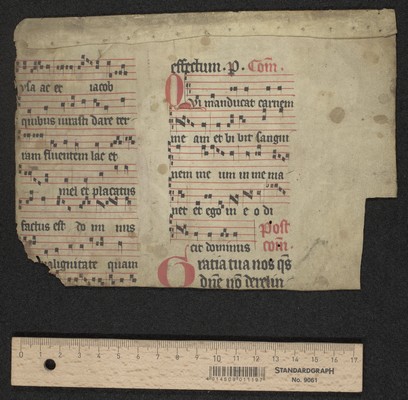 ysa ac et iacob
quibus iurasti dare ter
ram fluentem lac et
mel et placatus
factus est do mi nus
malignitate quam
effectum . P . Com̄ .
Qui manducat carnem
me am et bi bit sangui
nem me um in me ma
net et ego in e o di
cit dominus Post
com .
Gratia tua nos q̄s
dn̄e nō derelin
0 1 2 3 4 5 6 7 8 9 10 11 12 13 14 15 16 17
STANDARDGRAPH
No. 9061